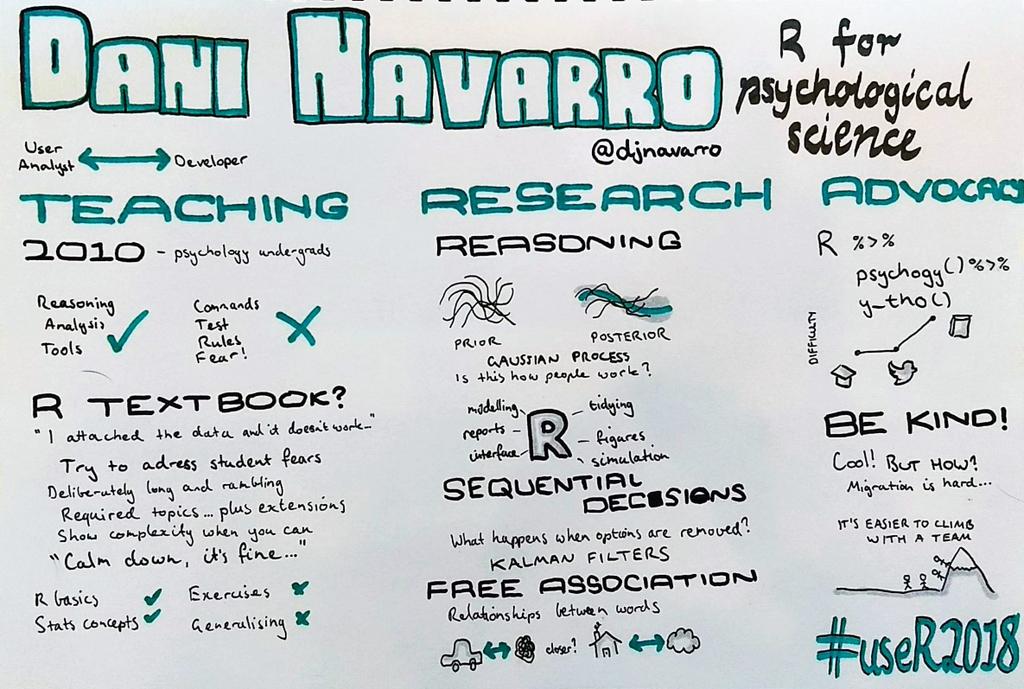 DANI NAVARRO
R for
psychological
science
@djnavarro
User
Analyst
Developer
TEACHING
2010 - psychology undergrads
Reasoning
Analysis
Tools
Commands
Test
Rules
Fear!
R TEXTBOOK?
"I attached the data and it doesn't work..."
Try to adress student fears
Deliberately long and rambling
Required topics... plus extensions
Show complexity when you can
"Calm down, it's fine..."
R basics
Stats concepts
Exercises
Generalising
RESEARCH
REASONING
PRIOR
POSTERIOR
GAUSSIAN PROCESS
Is this how people work?
modelling
reports
interface
R
tidying
figures
simulation
SEQUENTIAL
DECISIONS
What happens when options are removed?
KALMAN FILTERS
FREE ASSOCIATION
Relationships between words
closer?
ADVOCACY
R %>%
psychogy() %>%
y_tho()
DIFFICULTY
BE KIND!
Cool! BUT HOW?
Migration is hard...
IT'S EASIER TO CLIMB
WITH A TEAM
#useR2018